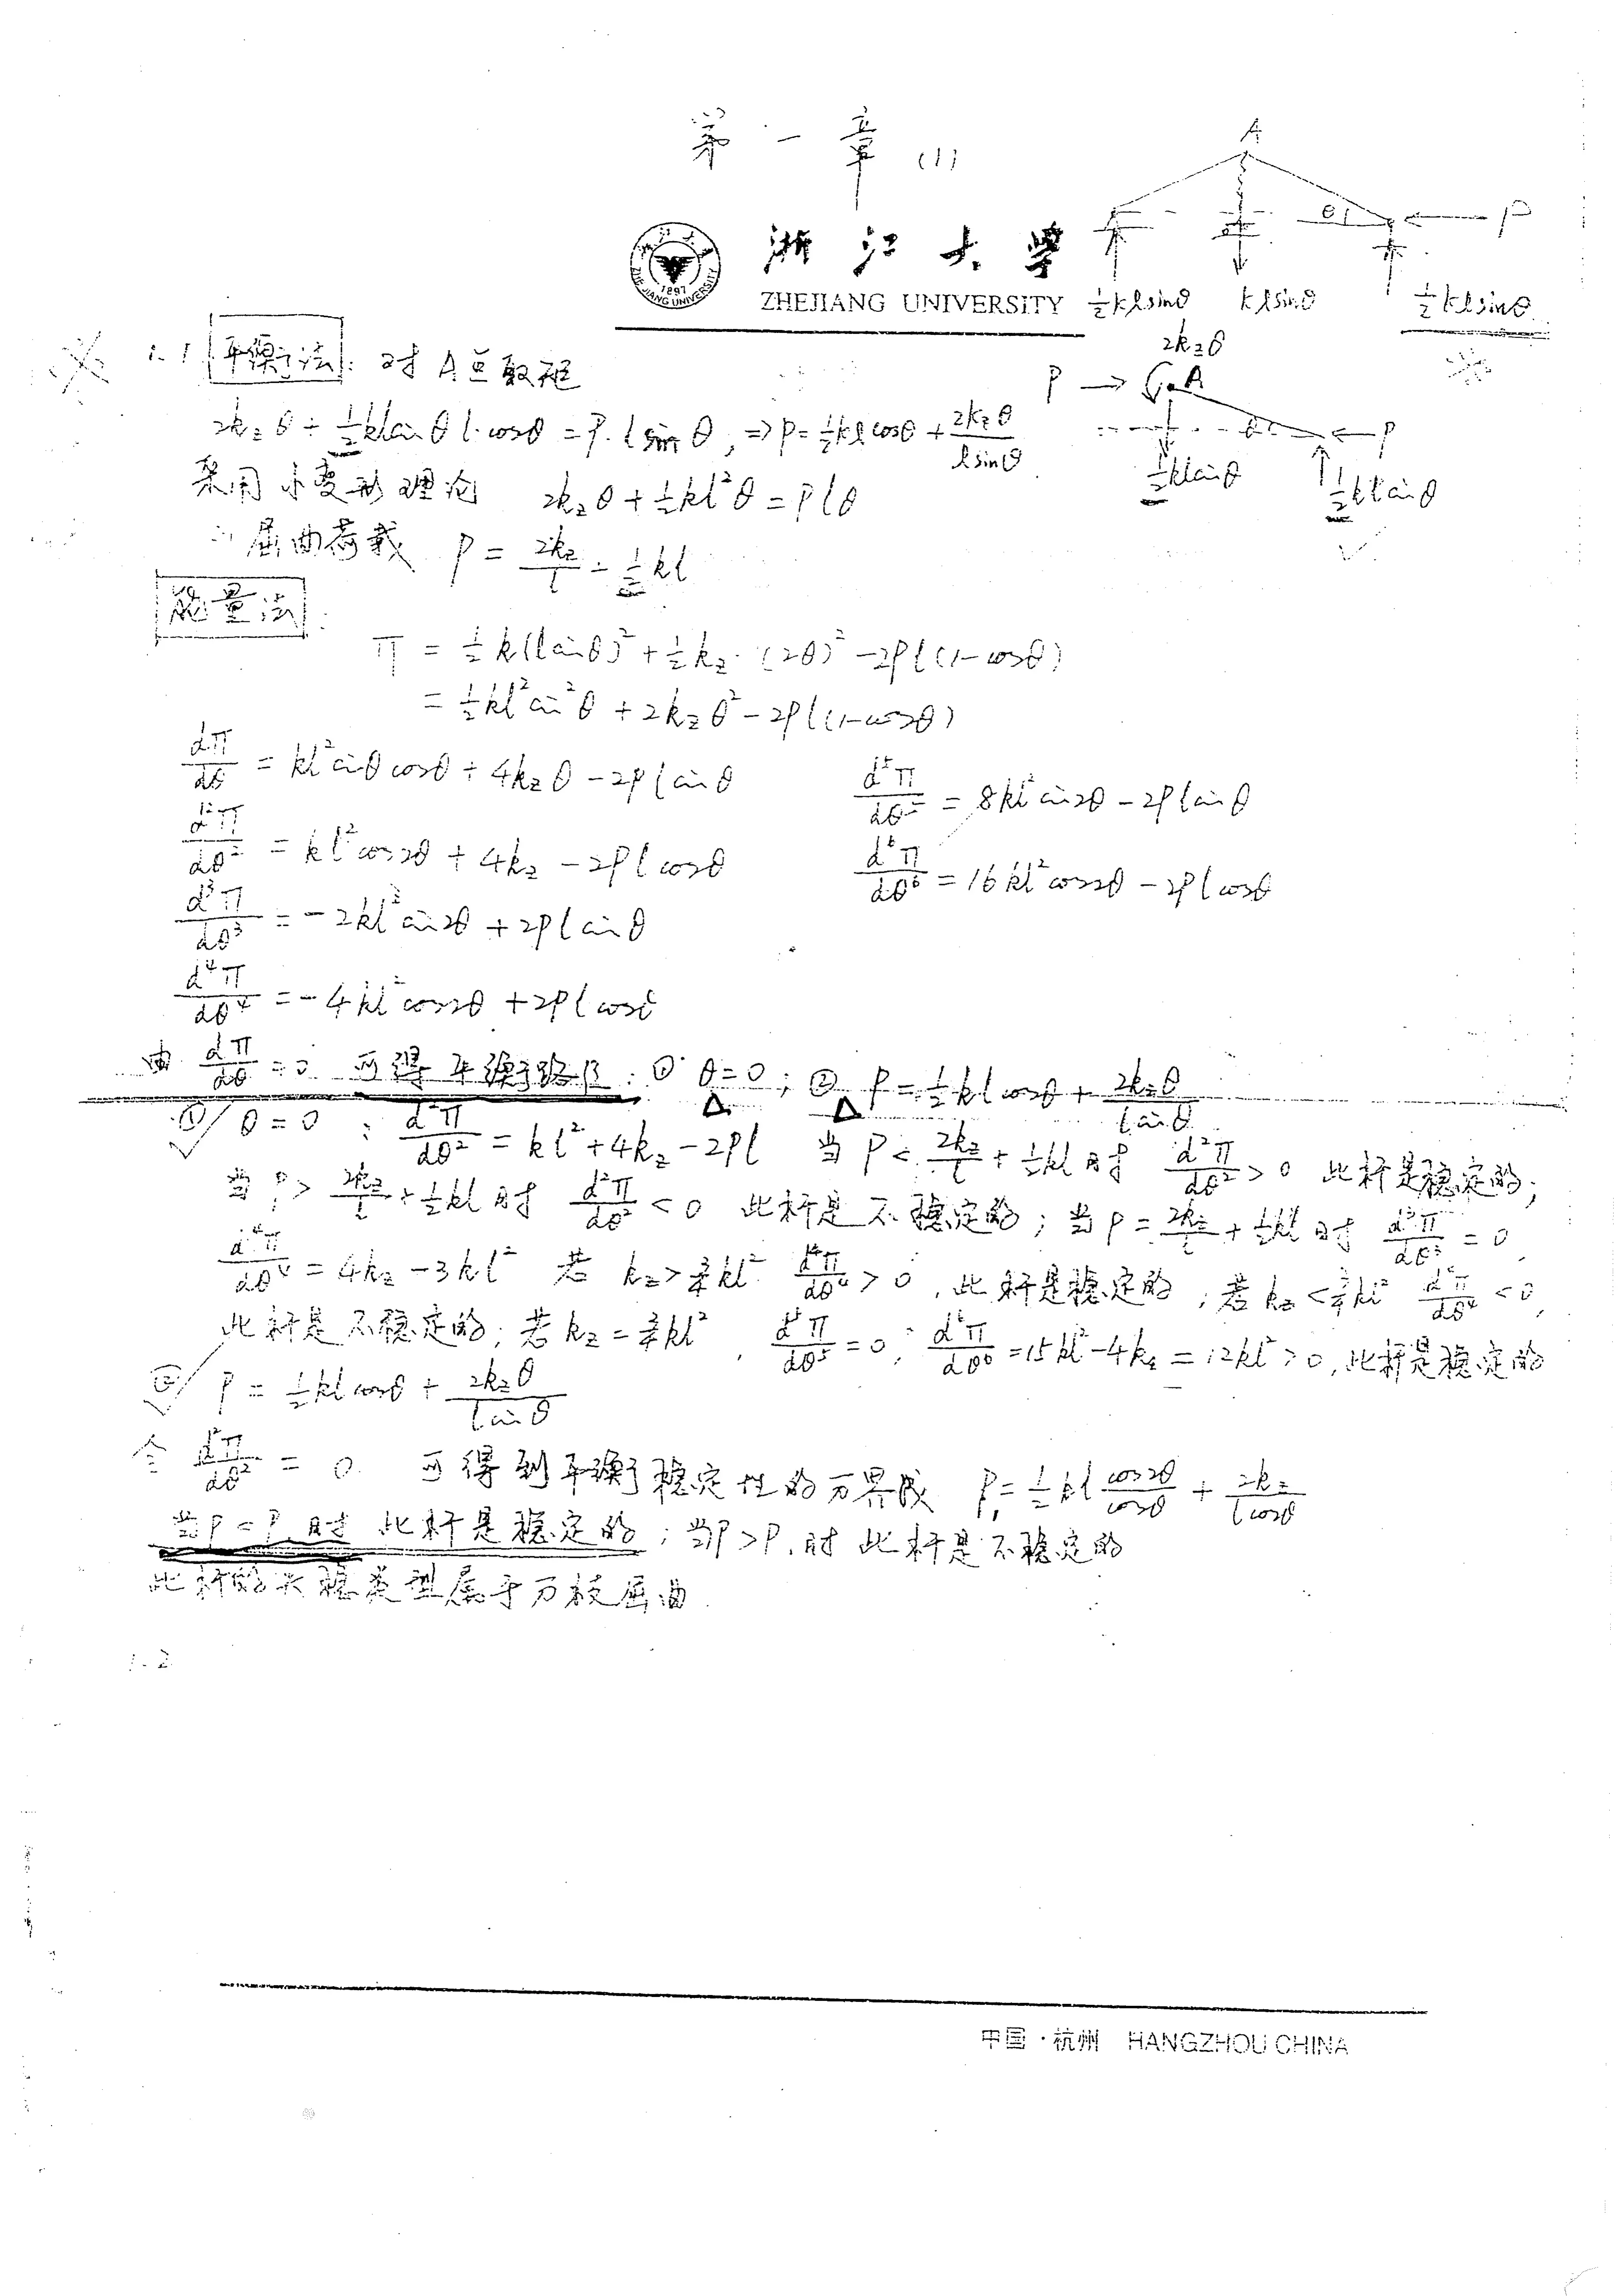 第一章 (1)
A
θ P
浙江大学
ZHEJIANG UNIVERSITY ½klsinθ klsinθ ½klsinθ
2k₂θ
1.1 平衡法: 对A点取矩
P → A
2k₂θ + ½klsinθ l·cosθ = P·lsinθ, ⇒ P = ½klcosθ + 2k₂θ/lsinθ
θ ← P
½klsinθ ½klsinθ
采用小变形理论 2k₂θ + ½kl²θ = Plθ
∴ 屈曲荷载 P = 2k₂/l + ½kl
能量法:
Π = ½k(lsinθ)² + ½k₂·(2θ)² − 2Pl(1−cosθ)
= ½kl²sin²θ + 2k₂θ² − 2Pl(1−cosθ)
dΠ/dθ = kl²sinθcosθ + 4k₂θ − 2Plsinθ
d²Π/dθ² = kl²cos2θ + 4k₂ − 2Plcosθ
d³Π/dθ³ = −2kl²sin2θ + 2Plsinθ
d⁴Π/dθ⁴ = −4kl²cos2θ + 2Plcosθ
d⁵Π/dθ⁵ = 8kl²sin2θ − 2Plsinθ
d⁶Π/dθ⁶ = 16kl²cos2θ − 2Plcosθ
由 dΠ/dθ = 0 可得平衡路径: ① θ=0; ② P = ½klcosθ + 2k₂θ/lsinθ
①/ θ=0 : d²Π/dθ² = kl² + 4k₂ − 2Pl 当 P < 2k₂/l + ½kl 时 d²Π/dθ² > 0 此杆是稳定的;
当 P > 2k₂/l + ½kl 时 d²Π/dθ² < 0 此杆是不稳定的; 当 P = 2k₂/l + ½kl 时 d³Π/dθ³ = 0
d⁴Π/dθ⁴ = 4k₂ − 3kl² 若 k₂ > ¾kl² d⁴Π/dθ⁴ > 0, 此杆是稳定的; 若 k₂ < ¾kl² d⁴Π/dθ⁴ < 0,
此杆是不稳定的; 若 k₂ = ¾kl², d⁵Π/dθ⁵ = 0, d⁶Π/dθ⁶ = 15kl² − 4k₂ = 12kl² > 0, 此杆是稳定的
②/ P = ½klcosθ + 2k₂θ/lsinθ
令 d²Π/dθ² = 0 可得到平衡稳定性的分界线 P₁ = ½kl cos2θ/cosθ + 2k₂/lcosθ
当P = P₁时 此杆是稳定的; 当P > P₁时 此杆是不稳定的
此杆的失稳类型属于分枝屈曲
1-2
中国·杭州 HANGZHOU CHINA